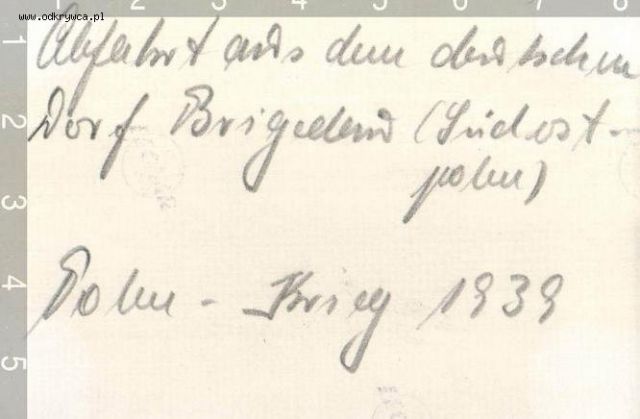 www.odkrywca.pl
1 2 3 4 5 6 7 8
Abfahrt aus dem deutschen
Dorf Brigidau (Südost-
polen)
Polen - Krieg 1939
1
2
3
4
5